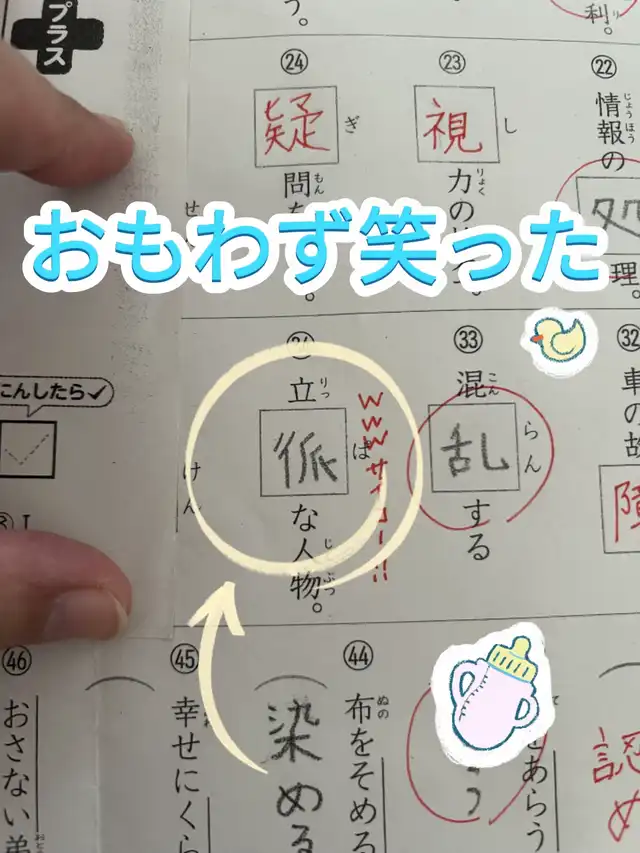 プラス
おもわず笑った
う。
利。
り
㉒
情報の処理。
じょうほう
㉓
視力の
し
りょく
㉔
疑問
ぎ
もん
せ
32
車の故障
㉝
混乱する
こん
らん
立
な人物。
りっ
ぱ
じんぶつ
wwwサイコー!!
けん
にんしたら✓
認め
あらう
㊹
布をそめる
ぬの
染める
㊺
幸せにくら
㊻
おさない弟